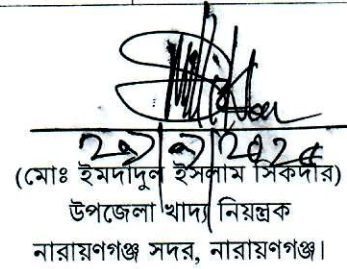 (মোঃ ইমদাদুল ইসলাম সিকদার)
উপজেলা খাদ্য নিয়ন্ত্রক
নারায়ণগঞ্জ সদর, নারায়ণগঞ্জ।